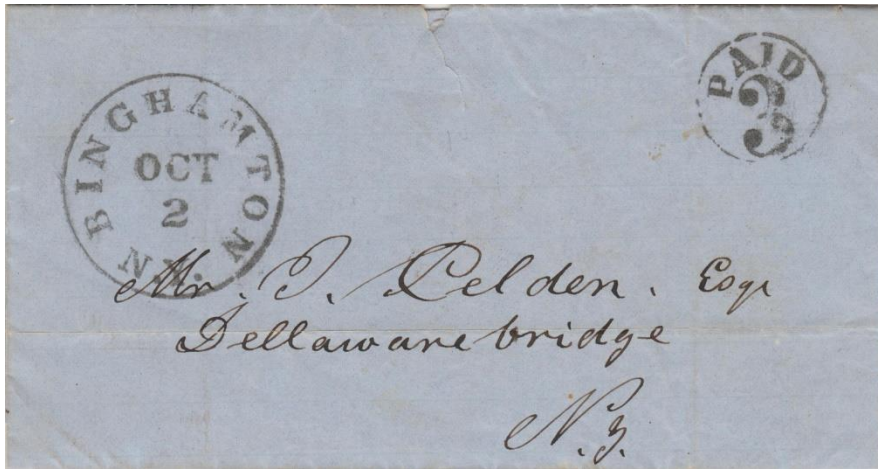 PAID
3
BINGHAMTON
N.Y.
OCT
2
Mr. J. Pelden. Esqr
Dellaware bridge
N.Y.